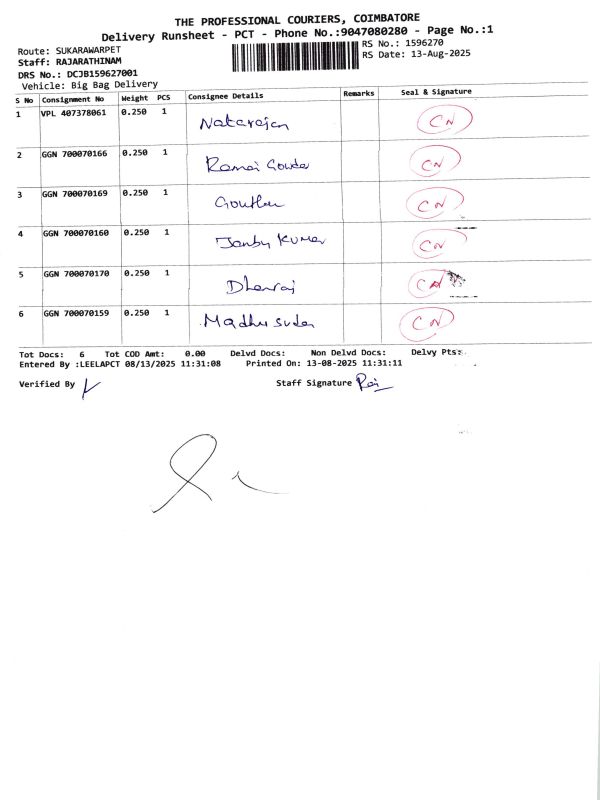 THE PROFESSIONAL COURIERS, COIMBATORE
Delivery Runsheet - PCT - Phone No.:9047080280 - Page No.:1
Route: SUKARAWARPET
Staff: RAJARATHINAM
DRS No.: DCJB159627001
Vehicle: Big Bag Delivery
RS No.: 1596270
RS Date: 13-Aug-2025
S No Consignment No Weight PCS Consignee Details Remarks Seal & Signature
1 VPL 407378061 0.250 1 Natarajan CN
2 GGN 700070166 0.250 1 Gowder CN
3 GGN 700070169 0.250 1 CN
4 GGN 700070160 0.250 1 Kumar CN
5 GGN 700070170 0.250 1 Dhanraj CN
6 GGN 700070159 0.250 1 Madhu sudan CN
Tot Docs: 6 Tot COD Amt: 0.00 Delvd Docs: Non Delvd Docs: Delvy Pts:
Entered By :LEELAPCT 08/13/2025 11:31:08 Printed On: 13-08-2025 11:31:11
Verified By Staff Signature Raj